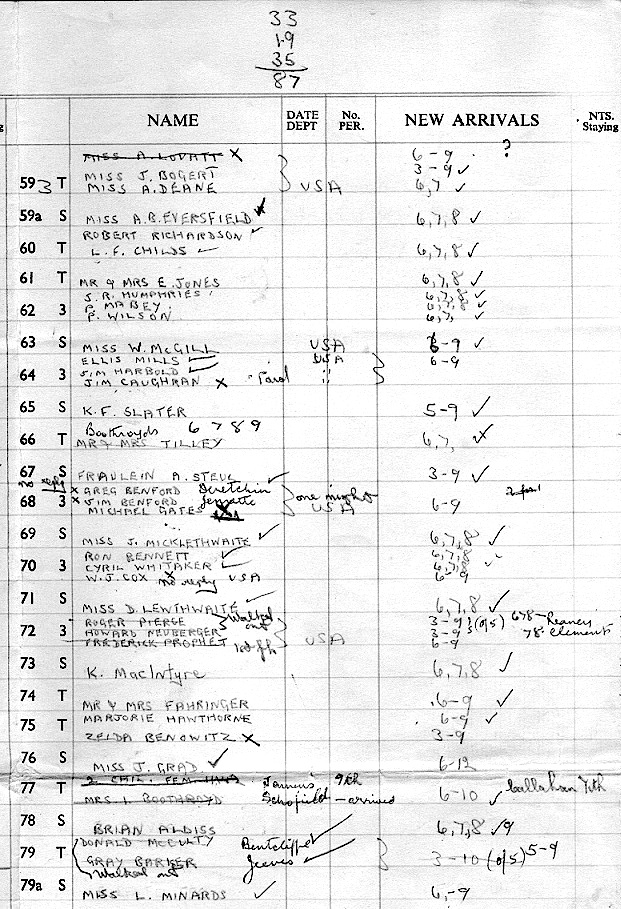 33
19
35
87
NAME DATE DEPT No. PER. NEW ARRIVALS NTS. Staying
MISS A. LOVATT X 6-9 ?
MISS J. BOGERT 3-9 ✓
59 3 T MISS A. DEANE USA 6,7 ✓
59a S MISS A.B. EVERSFIELD 6,7,8 ✓
ROBERT RICHARDSON ✓
60 T L.F. CHILDS ✓ 6,7,8 ✓
61 T MR & MRS E. JONES 6,7,8 ✓
J.R. HUMPHRIES 6,7,8 ✓
62 3 P. MABEY 6,7, ✓
P. WILSON 6,7, ✓
63 S MISS W. McGILL USA 6-9 ✓
ELLIS MILLS USA 6-9
64 3 JIM HARBOLD ✓
JIM CAUGHRAN X Paid "
65 S K.F. SLATER 5-9 ✓
Boothroyds 6 7 8 9
66 T MR & MRS TILLEY 6,7,
67 S FRAULEIN A. STEUL ✓ 3-9 ✓
no reply X GREG BENFORD
68 3 X JIM BENFORD one night 6-9
MICHAEL GATES X USA
69 S MISS J. MICKLETHWAITE ✓ 6,7,8 ✓
RON BENNETT ✓ 6,7,8
70 3 CYRIL WHITAKER ✓ 6,7,8
W.J. COX X no reply USA 6-9
71 S MISS D. LEWTHWAITE ✓ 6,7,8 ✓
ROGER PIERCE Walked out 3-9 (o/s) 678-
72 3 HOWARD NEUBERGER 3-9 78 Clements
FREDERICK PROPHET USA 6-9
73 S K. MacIntyre 6,7,8 ✓
74 T MR & MRS FAHRINGER 6-9 ✓
MARJORIE HAWTHORNE 6-9 ✓
75 T ZELDA BENOWITZ X 3-9
76 S MISS J. GRAD ✓ 6-12
77 T 9th
MRS I. BOOTHROYD Schofield - arrived 6-10 ✓ Callahan 7th
78 S BRIAN ALDISS 6,7,8 ✓9
DONALD McCULTY Bentcliffe ✓
79 T GRAY BARKER Jeeves ✓ 3-10 (o/s) 5-9
Walked out
79a S MISS L. MINARDS ✓ 6,-9